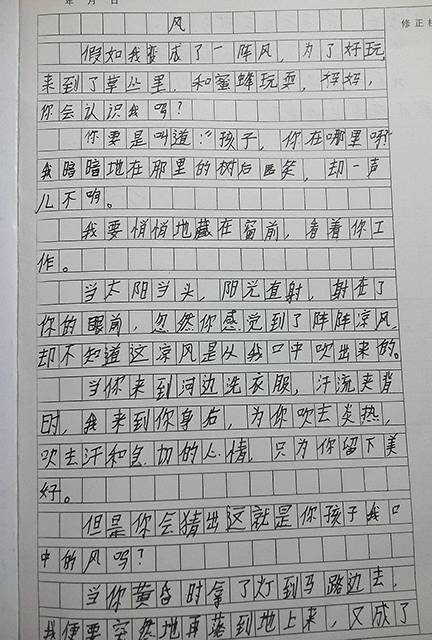 年 月 日
修正栏
风
假如我变成了一阵风，为了好玩，
来到了草丛里，和蜜蜂玩耍，妈妈，
你会认识我吗？
你要是叫道：“孩子，你在哪里呀？
我暗暗地在那里的树后匿笑，却一声
儿不响。
我要悄悄地藏在窗前，看着你工
作。
当太阳当头，阳光直射，射在了
你的眼前，忽然你感觉到了阵阵凉风，
却不知道这凉风是从我口中吹出来的。
当你来到河边洗衣服，汗流夹背
时，我来到你身后，为你吹去炎热，
吹去汗和急切的心情，只为你留下美
好。
但是你会猜出这就是你孩子我口
中的风吗？
当你黄昏时拿了灯到马路边去，
我便要突然地再落到地上来，又成了